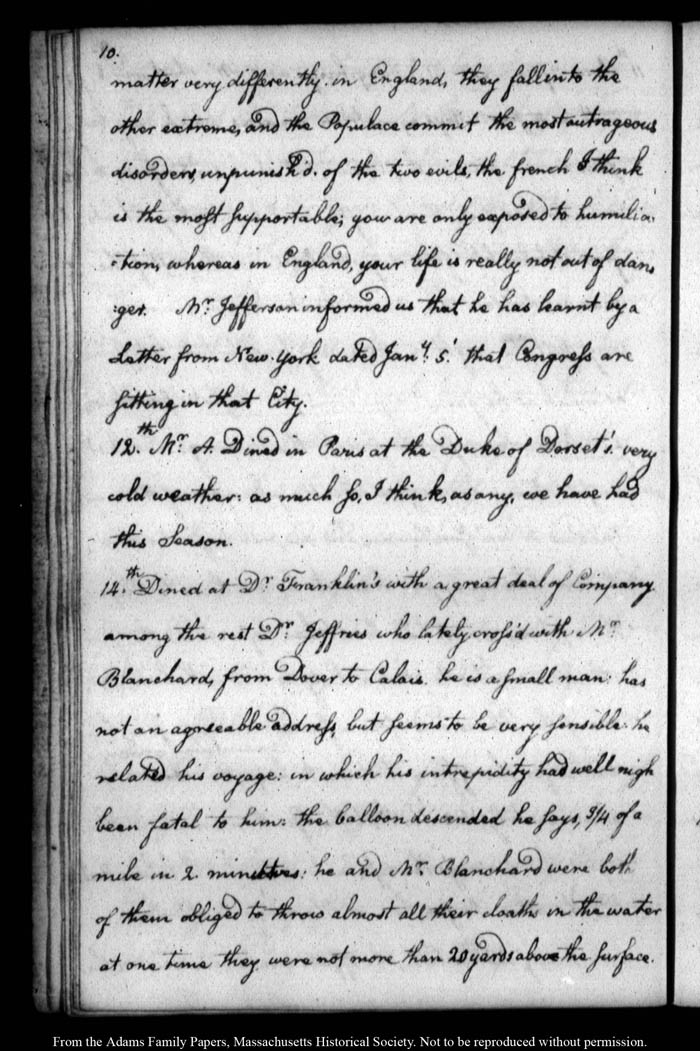 10.
matter very differently. in England, they fall into the
other extreme, and the Populace commit the most outrageous
disorders, unpunish'd. of the two evils, the french I think
is the most supportable; you are only exposed to humilia-
-tion, whereas in England, your life is really not out of dan,
:ger. Mr. Jefferson informed us that he has learnt by a
Letter from New-York dated Jany. 5.' that Congress are
sitting in that City.
12.th Mr A. Dined in Paris at the Duke of Dorset's. very
cold weather: as much so, I think, as any, we have had
this Season.
14.th Dined at Dr Franklin's with a great deal of Company.
among the rest Dr. Jeffries who lately cross'd with Mr.
Blanchard, from Dover to Calais. he is a small man: has
not an agreeable address, but seems to be very sensible. he
related his voyage: in which his intrepidity had well nigh
been fatal to him: the balloon descended he says, 3/4 of a
mile in 2 minutes: he and Mr. Blanchard were both
of them obliged to throw almost all their cloaths in the water
at one time they were not more than 20 yards above the surface.
From the Adams Family Papers, Massachusetts Historical Society. Not to be reproduced without permission.